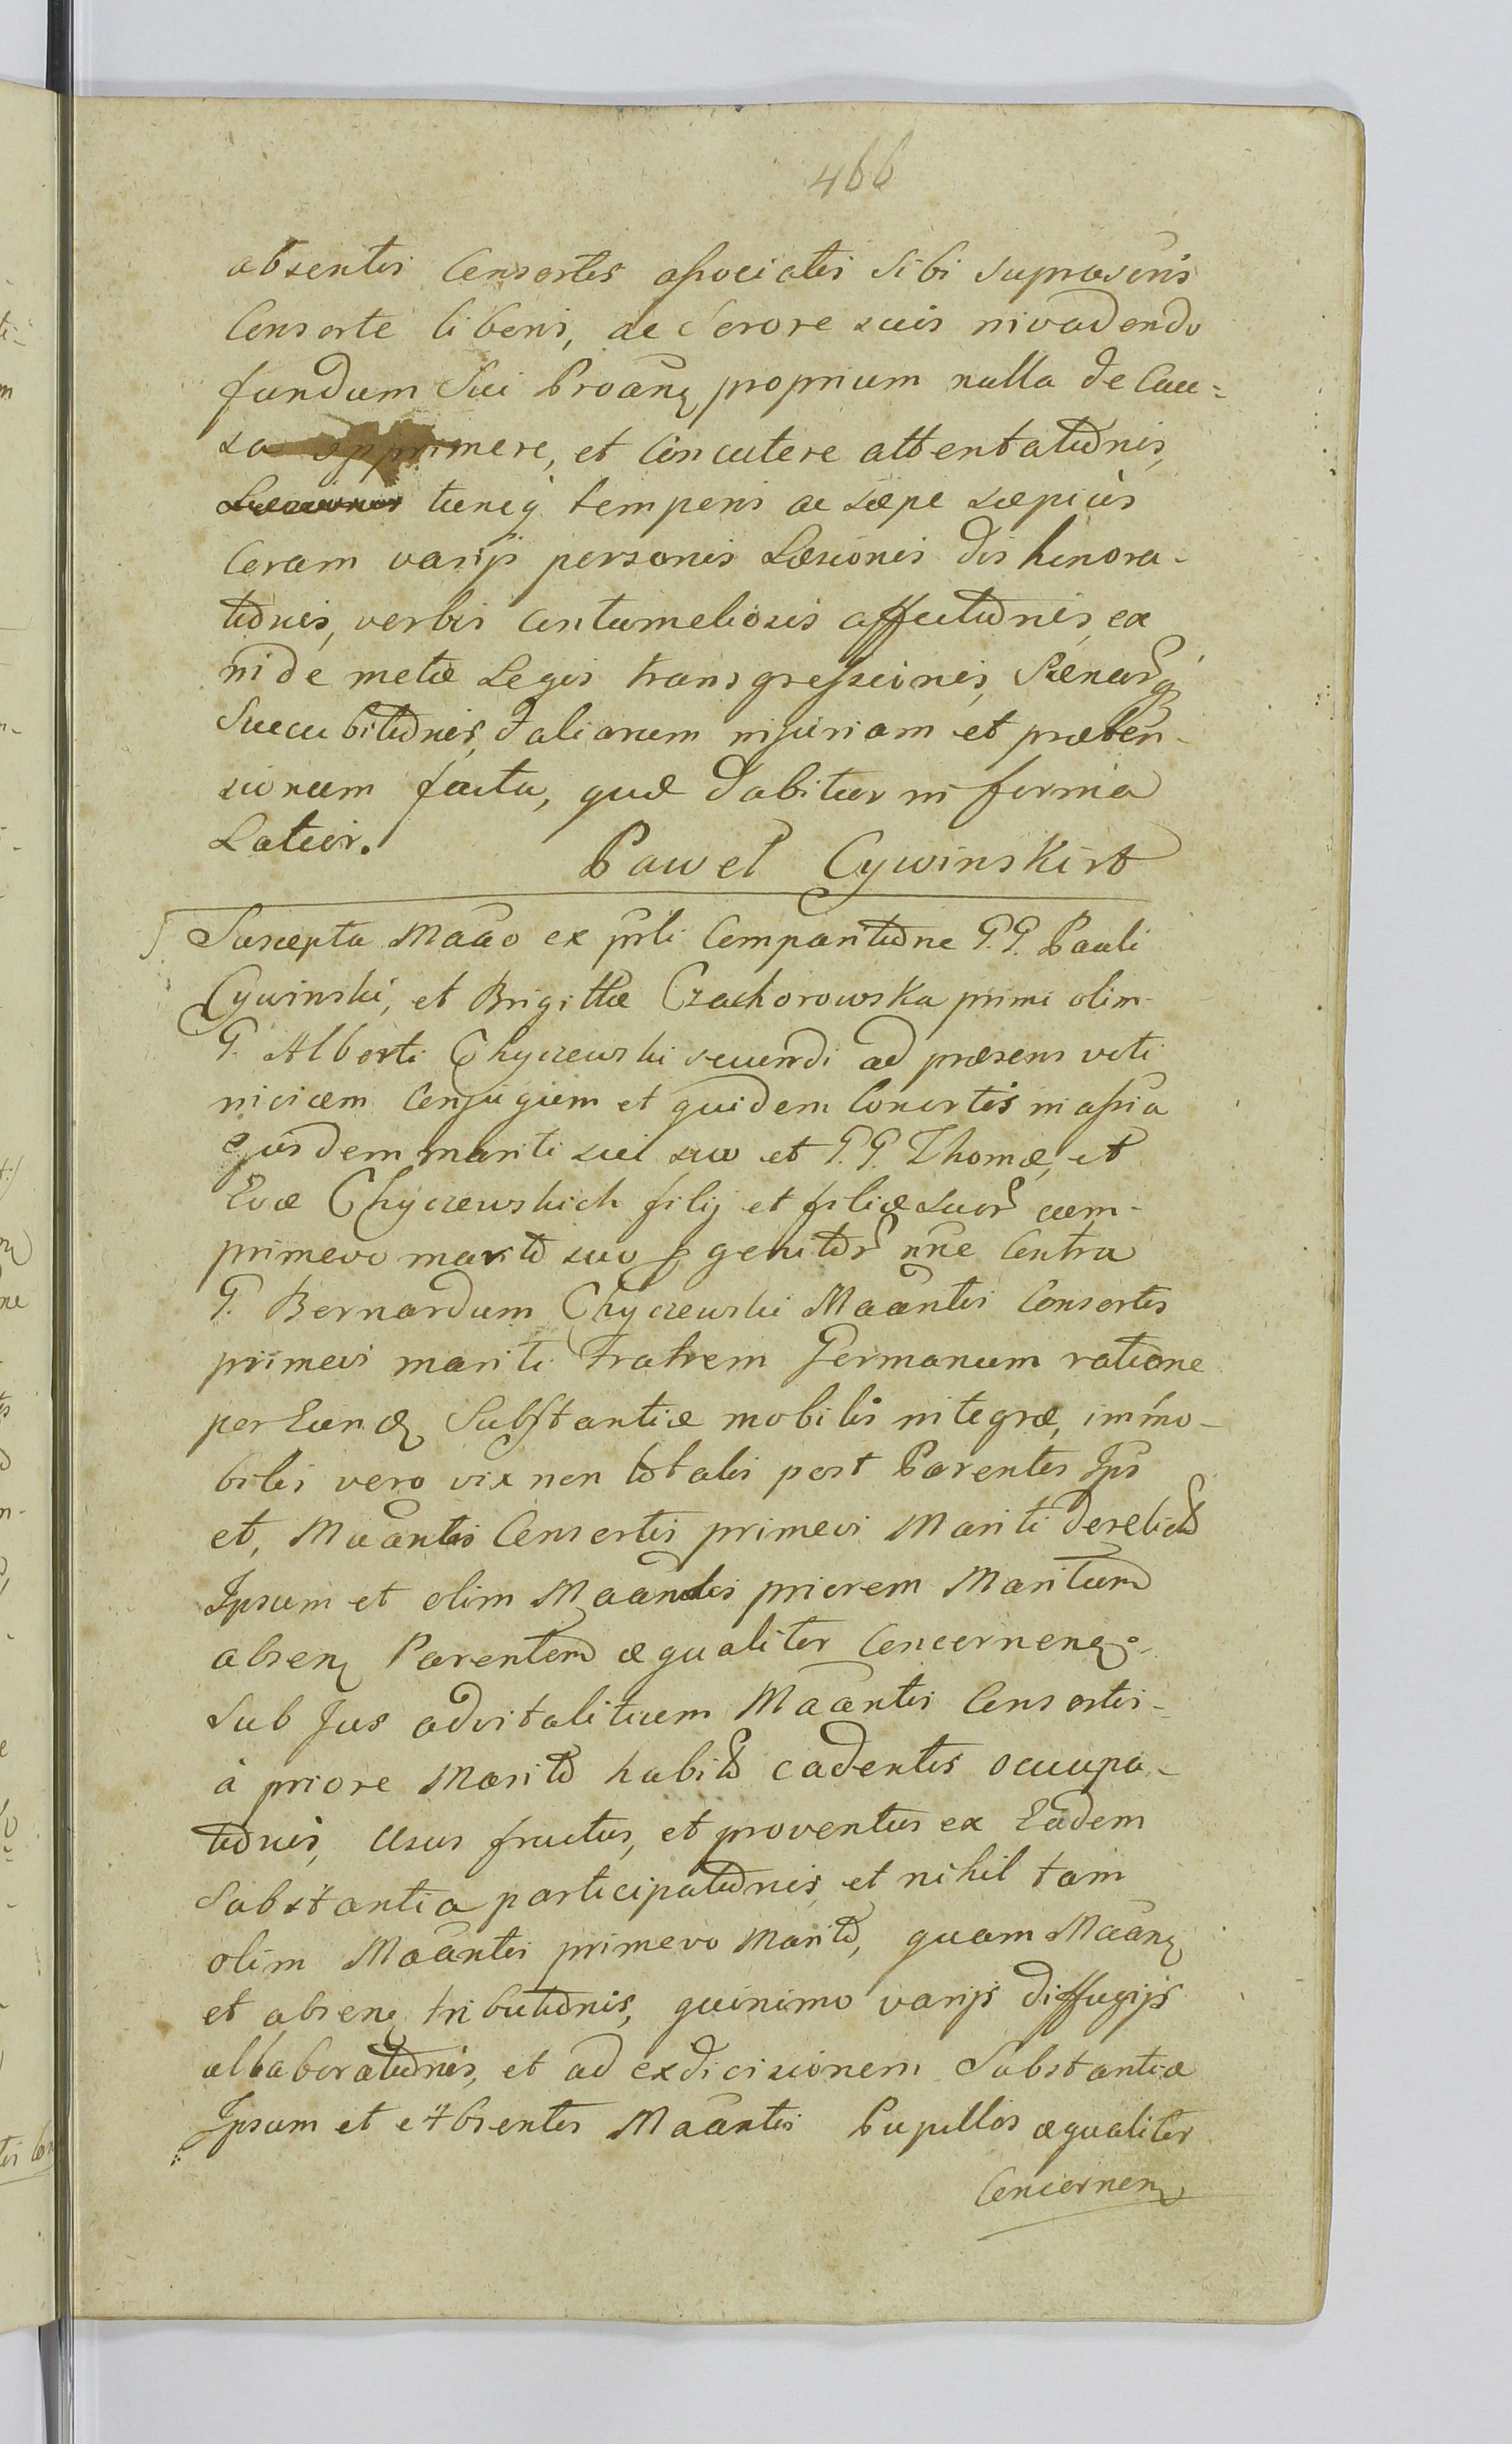 466
absentis Consortis associatis sibi suprascriptis
Consorte liberis, ac Sorore suis invadendo
fundum sui Proanę proprium nulla de Cau=
sa opprimere, et Concutere attentationis,
tuncq́ temporis ac sæpe sæpius
Coram varijs personis Læsionis dishonora-
tionis, verbis contumeliosis affectionis, ex
inde metæ Legis transgressionis, Pænarq́
Succubitionis, & aliarum injuriam et præten-
sionum facta, quæ dabitur in forma
Latior.
Pawel Cywinski
Suscepta Maão ex prli Comparitione G.G. Pauli
Cywinski, et Brigittæ Czachorowska primi olim
G. Alberti Chyczewski secundi ad præsens voti
invicem Conjugum et quidem Consortis in assia
ejusdem mariti sui suo et G.G. Thomæ, et
Evæ Chyczewskich filij et filiæ suor cum-
primevo marito suo genitor nne Contra
G. Bernardum Chyczewski Maãntis Consortis
primevi mariti fratrem Germanum ratione
per Eundę Substantiæ mobilis integræ, immo-
bilis vero vix non totalis post Parentes Ips
et, Maãntis Consortis primevi Mariti derelictæ
Ipsum et olim Maãntis priorem Maritum
absenę Parentem æqualiter Concernenę,
Sub Jus advitalitium Maãntis Consortis-
à priore Marito habito cadentis occupa-
tionis, Usus fructus, et proventus ex Eadem
Substantia participationis, et nihil tam
olim Maãntis primevo Marito, quam Maãnę
et absenę tributionis, quinimo varijs diffugijs
allaborationis, et ad exdivisionem Substantiæ
Ipsum et absentes Maãntis Pupillos æqualiter
Concernenę